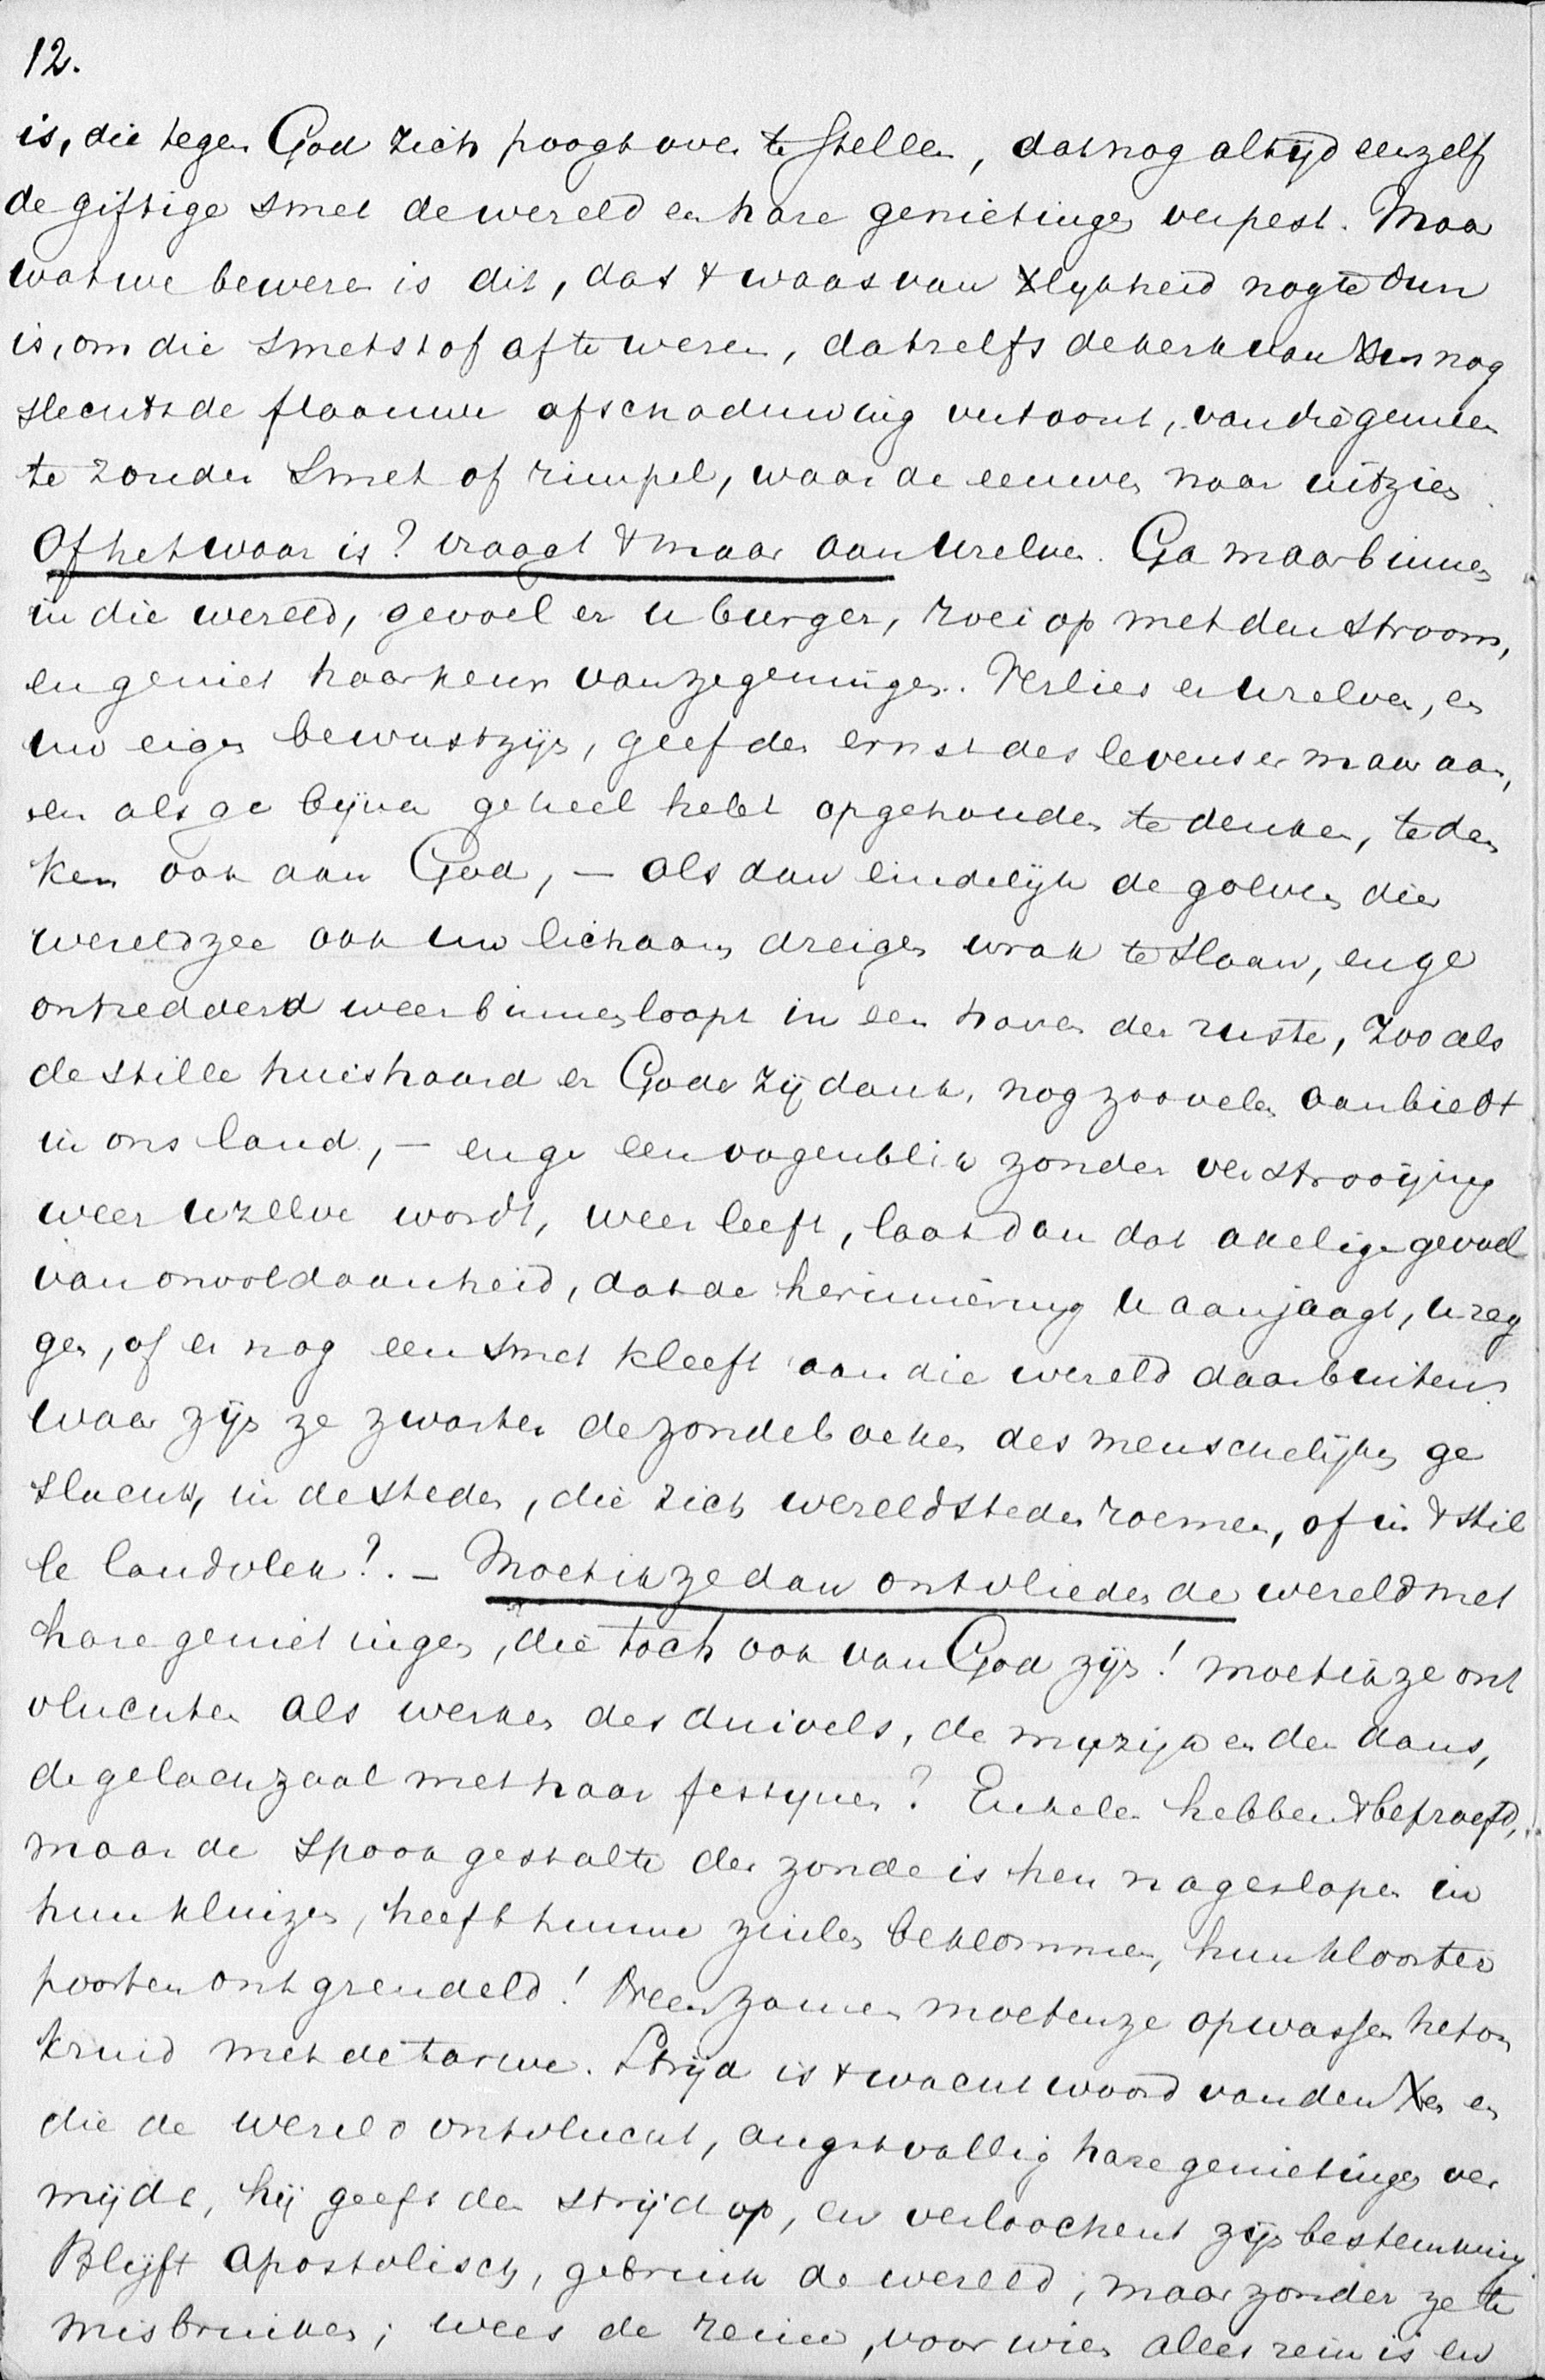 12.
is, die tegen God zich poogt over te stellen, dat nog altijd eenzelf
de giftige smet de wereld en hare genietingen verpest. Maar
wat we beweren is dit, dat 't waas van Xlykheid nog te dun
is, om die smetstof af te weren, dat zelfs de kerk van Xus nog
slechts de flaauwe afschaduwing vertoont, van die gemeen
te zonder smet of rimpel, waar de eeuwen naar uitzien.
Of het waar is? vraagt 't maar aan Uzelven. Ga maar binnen
in die wereld, gevoel er U burger, roei op met den stroom,
en geniet haar keur van zegeningen. Verlies er Uzelven, en
uw eigen bewustzijn, geef den ernst des levens er maar aan,
en als ge bijna geheel hebt opgehouden te denken, te den
ken ook aan God, – als dan eindelijk de golven dier
wereldzee ook Uw lichaam dreigen wrak te slaan, en ge
ontredderd weer binnenloopt in een haven der ruste, zooals
de stille huishaard er Gode zij dank, nog zoovelen aanbiedt
in ons land, – en ge een oogenblik zonder verstrooijing
weer Uzelve wordt, weer leeft, laat dan dat akelige gevoel
van onvoldaanheid, dat de herinnering U aanjaagt, U zeg
gen, of er nog een smet kleeft aan die wereld daarbuiten.
Waar zijn ze zwarter de zondeboeken des menschelijken ge
slachts, in de steden, die zich wereldsteden roemen, of in 't stil
le landvlek?. – Moet ik ze dan ontvlieden de wereld met
hare genietingen, die toch ook van God zijn! moet ik ze ont
vluchten als werken des duivels, de muzijk en den dans,
de gelachzaal met haar festijnen? Enkelen hebben 't beproefd,
maar de spookgestalte der zonde is hen nageslopen in
hun kluizen, heeft hunne zuilen beklommen, hun klooster
poorten ontgrendeld! Neen zamen moeten ze opwassen het on
kruid met de tarwe. Strijd is 't wachtwoord van den Xen en
die de wereld ontvlucht, angstvallig hare genietingen ver
mijdt, hij geeft den strijd op, en verloochent zijn bestemming
Blijft apostolisch, gebruik de wereld, maar zonder ze te
misbruiken; wees de reine, voor wien alles rein is en